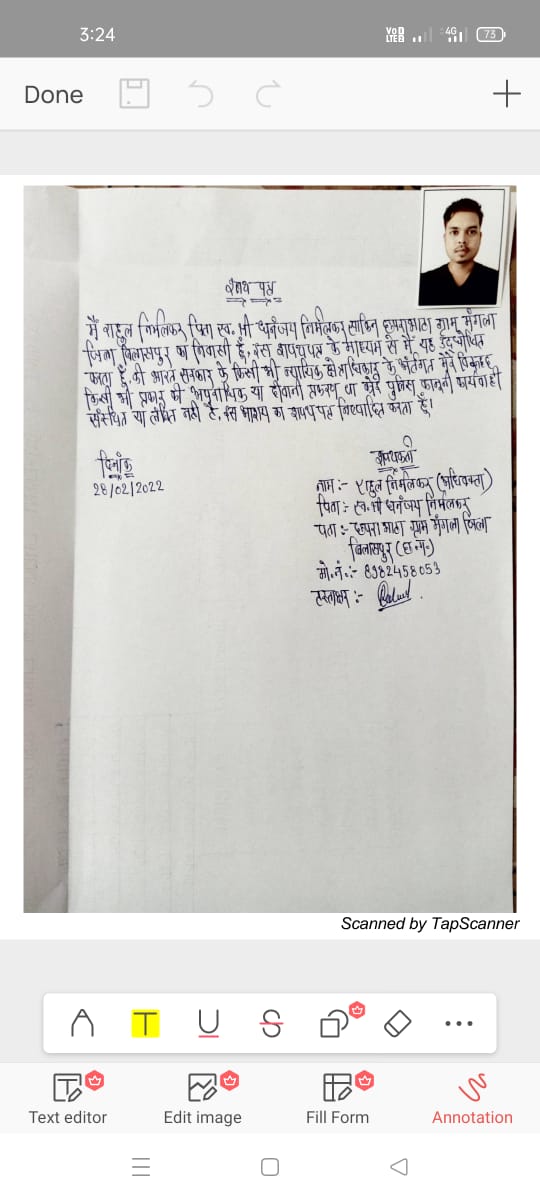 3:24
VoD LTEB 4G 73
Done
शपथ पत्र
मैं राहुल निर्मलकर पिता स्व. श्री धनंजय निर्मलकर साकिन छपराभाठा ग्राम मंगला
जिला बिलासपुर का निवासी हूँ, इस शपथपत्र के माध्यम से मैं यह उद्घोषित
करता हूँ, की भारत सरकार के किसी भी न्यायिक क्षेत्राधिकार के अंतर्गत मेरे विरूद्ध
किसी भी प्रकार की अपराधिक या दीवानी प्रकरण या कोई पुलिस कानूनी कार्यवाही
संस्थित या लंबित नही है, इस आशय का शपथ पत्र निष्पादित करता हूँ।
दिनांक
28/02/2022
शपथकर्ता
नाम :- राहुल निर्मलकर (अधिवक्ता)
पिता :- स्व. श्री धनंजय निर्मलकर
पता :- छपरा भाठा ग्राम मंगला जिला
बिलासपुर (छ.ग.)
मो. नं. :- 8982458053
हस्ताक्षर :-
Scanned by TapScanner
T U S
Text editor Edit image Fill Form Annotation